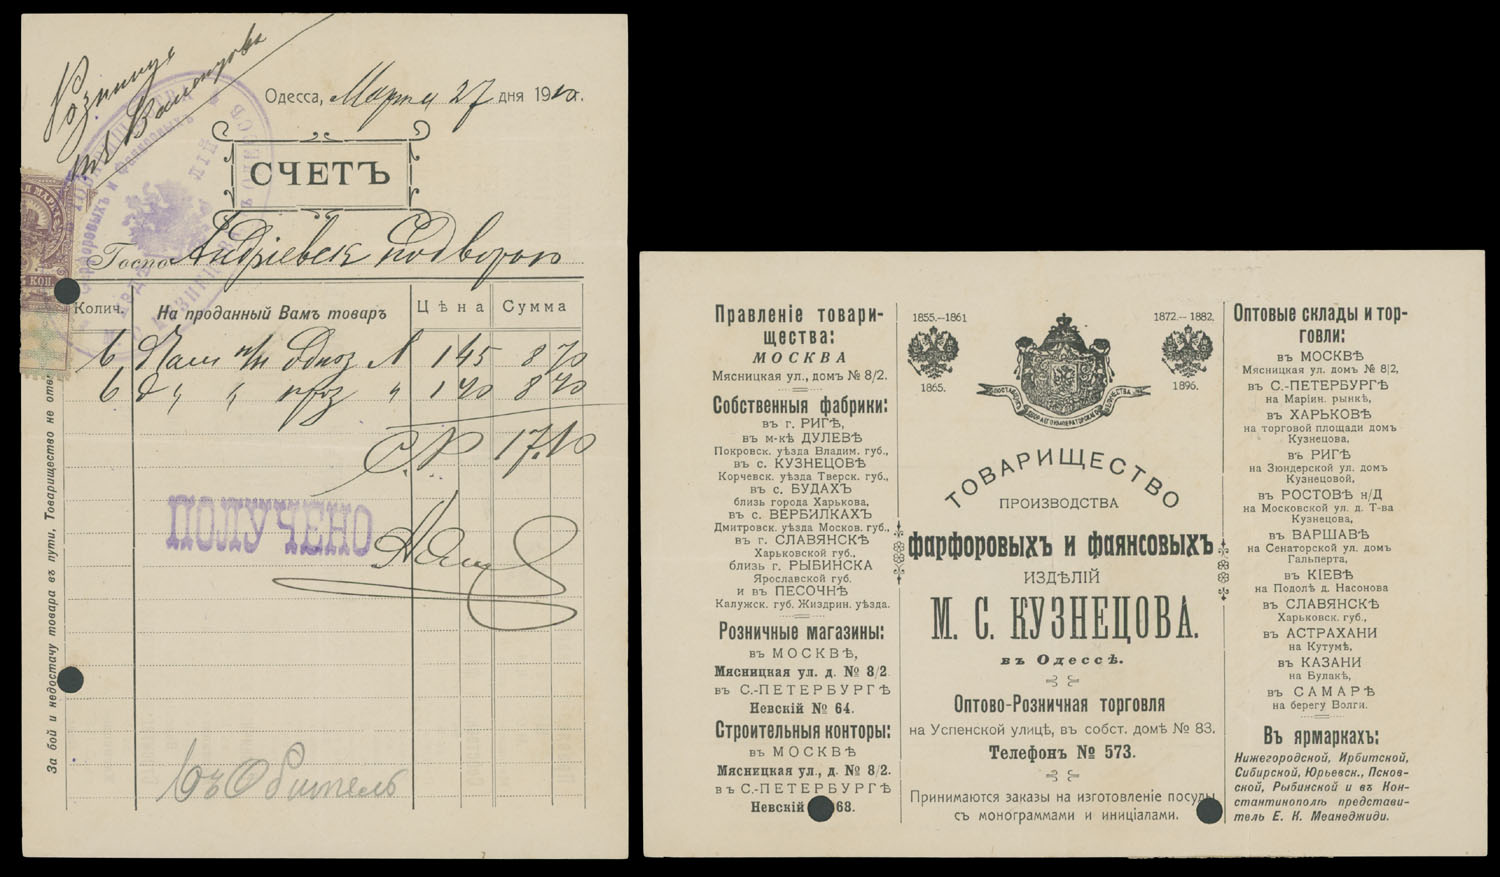 Одесса, Марта 27 дня 1910.
СЧЕТЪ
Госпо Андріевск подворою
Колич. На проданный Вамъ товаръ Цѣна Сумма
6 1 45 8 70
6 1 40 8 40
С.Р. 17.10
ПОЛУЧЕНО
Въ Обитель
За бой и недостачу товара въ пути, Товарищество не отвѣ
КОП.
Правленіе товари-
щества:
МОСКВА
Мясницкая ул., домъ № 8/2.
Собственныя фабрики:
въ г. РИГѢ,
въ м-кѣ ДУЛЕВѢ
Покровск. уѣзда Владим. губ.,
въ с. КУЗНЕЦОВѢ
Корчевск. уѣзда Тверск. губ.,
въ с. БУДАХЪ
близь города Харькова,
въ с. ВЕРБИЛКАХЪ
Дмитровск. уѣзда Москов. губ.,
въ г. СЛАВЯНСКѢ
Харьковской губ.,
близь г. РЫБИНСКА
Ярославской губ.
и въ ПЕСОЧНѢ
Калужск. губ. Жиздрин. уѣзда.
Розничные магазины:
въ МОСКВѢ,
Мясницкая ул. д. № 8/2
въ С.-ПЕТЕРБУРГѢ
Невскій № 64.
Строительныя конторы:
въ МОСКВѢ
Мясницкая ул., д. № 8/2.
въ С.-ПЕТЕРБУРГѢ
Невскій 68.
1855.—1861
1865.
1872.—1882.
1896.
ТОВАРИЩЕСТВО
ПРОИЗВОДСТВА
фарфоровыхъ и фаянсовыхъ
ИЗДѢЛІЙ
М. С. КУЗНЕЦОВА.
въ Одессѣ.
Оптово-Розничная торговля
на Успенской улицѣ, въ собст. домѣ № 83.
Телефонъ № 573.
Принимаются заказы на изготовленіе посуды
съ монограммами и иниціалами.
Оптовые склады и тор-
говли:
въ МОСКВѢ
Мясницкая ул. домъ № 8|2,
въ С.-ПЕТЕРБУРГѢ
на Маріин. рынкѣ,
въ ХАРЬКОВѢ
на торговой площади домъ
Кузнецова,
въ РИГѢ
на Зюндерской ул. домъ
Кузнецовой,
въ РОСТОВѢ н/Д
на Московской ул. д. Т-ва
Кузнецова,
въ ВАРШАВѢ
на Сенаторской ул. домъ
Гальперта,
въ КІЕВѢ
на Подолѣ д. Насонова
въ СЛАВЯНСКѢ
Харьковск. губ.,
въ АСТРАХАНИ
на Кутумѣ,
въ КАЗАНИ
на Булакѣ,
въ САМАРѢ
на берегу Волги.
Въ ярмаркахъ:
Нижегородской, Ирбитской,
Сибирской, Юрьевск., Псков-
ской, Рыбинской и въ Кон-
стантинополѣ представи-
тель Е. К. Меанеджиди.